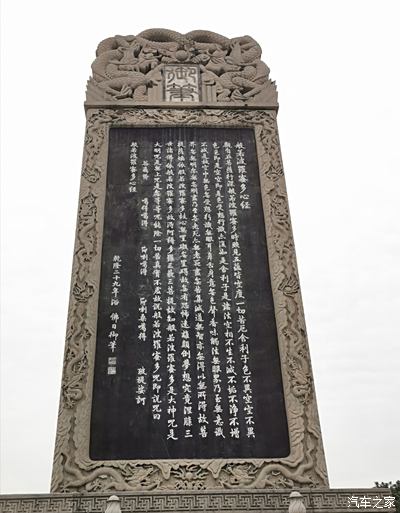 御筆
般若波羅蜜多心經
觀自在菩薩行深般若波羅蜜多時照見五蘊皆空度一切苦厄舍利子色不異空空不異
色色即是空空即是色受想行識亦復如是舍利子是諸法空相不生不滅不垢不淨不增
不減是故空中無色無受想行識無眼耳鼻舌身意無色聲香味觸法無眼界乃至無意識
界無無明亦無無明盡乃至無老死亦無老死盡無苦集滅道無智亦無得以無所得故菩
提薩埵依般若波羅蜜多故心無罣礙無罣礙故無有恐怖遠離顛倒夢想究竟涅槃三
世諸佛依般若波羅蜜多故得阿耨多羅三藐三菩提故知般若波羅蜜多是大神咒是
大明咒是無上咒是無等等咒能除一切苦真實不虛故說般若波羅蜜多咒即說咒曰
噶得噶得 噶得 噶得 娑訶
般若波羅蜜多心經
乾隆二十九年浴佛日御筆
汽车之家